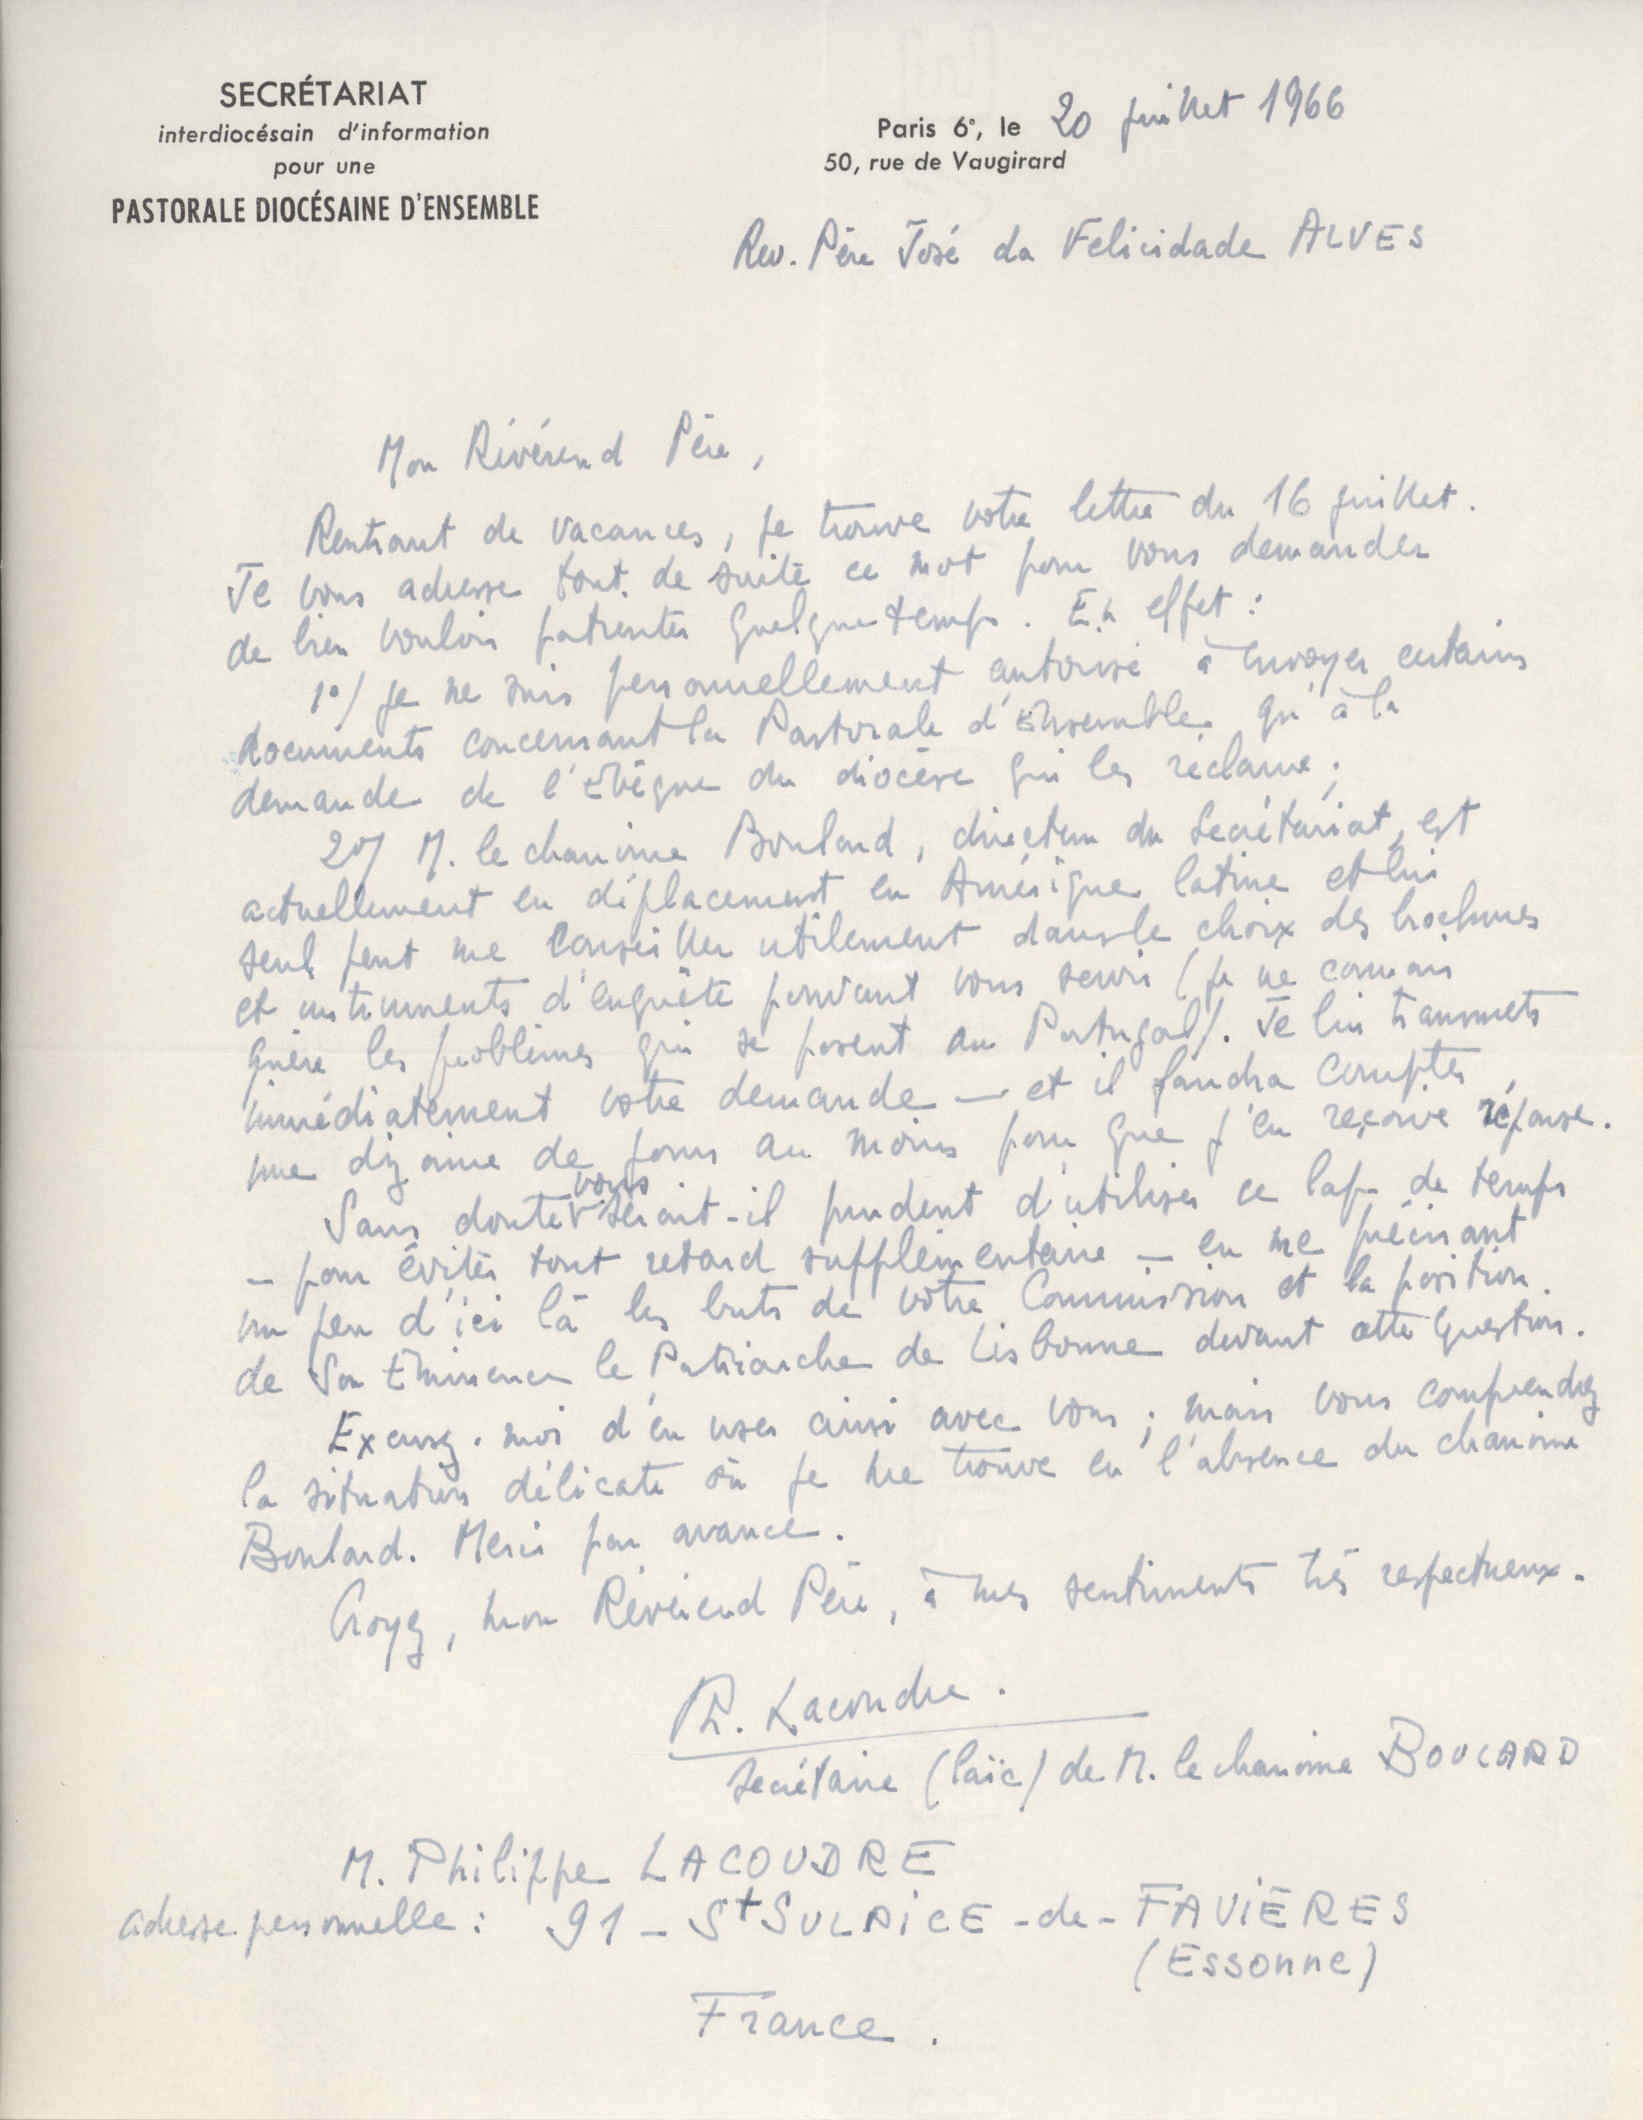 SECRÉTARIAT
interdiocésain d'information
pour une
PASTORALE DIOCÉSAINE D'ENSEMBLE
Paris 6e, le 20 juillet 1966
50, rue de Vaugirard
Rev. Père José da Felicidade ALVES
Mon Révérend Père,
Rentrant de vacances, je trouve votre lettre du 16 juillet.
Je vous adresse tout de suite ce mot pour vous demander
de bien vouloir patienter quelque temps. En effet :
1°/ je ne suis personnellement autorisé à envoyer certains
documents concernant la Pastorale d'Ensemble qu'à la
demande de l'Evêque du diocèse qui les réclame ;
2°/ M. le chanoine Boulard, directeur du Secrétariat, est
actuellement en déplacement en Amérique latine et lui
seul peut me conseiller utilement dans le choix des brochures
et instruments d'enquête pouvant vous servir (je ne connais
guère les problèmes qui se posent au Portugal). Je lui transmets
immédiatement votre demande — et il faudra compter
une dizaine de jours au moins pour que j'en reçoive réponse.
Sans doute vous serait-il prudent d'utiliser ce laps de temps
— pour éviter tout retard supplémentaire — en me précisant
un peu d'ici là les buts de votre Commission et la position
de Son Eminence le Patriarche de Lisbonne devant cette question.
Excusez-moi d'en user ainsi avec vous ; mais vous comprendrez
la situation délicate où je me trouve en l'absence du chanoine
Boulard. Merci par avance.
Croyez, mon Révérend Père, à mes sentiments très respectueux.
Ph. Lacoudre.
secrétaire (laïc) de M. le chanoine BOULARD
M. Philippe LACOUDRE
adresse personnelle : 91 - St SULPICE - de - FAVIÈRES
(Essonne)
France.